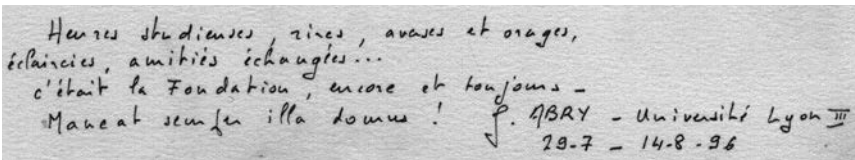 Heures studieuses, rires, averses et orages,
éclaircies, amitiés échangées...
c'était la Fondation, encore et toujours -
Maneat semper illa domus ! J. ABRY - Université Lyon III
29-7 - 14-8-96